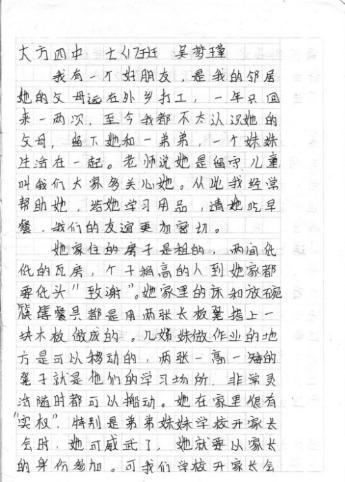 大方四中 七(2)班 吴梦瑾
我有一个好朋友，是我的邻居
她的父母远在外乡打工，一年只回
来一两次，至今我都不大认识她的
父母，留下她和一弟弟，一个妹妹
生活在一起。老师说她是留守儿童
叫我们大家多关心她。从此我经常
帮助她，给她学习用品，请她吃早
餐，我们的友谊更加密切。
她家住的房子是租的，两间低
低的瓦房，个子稍高的人到她家都
要低头"致谢"。她家里的床和放碗
筷餐具都是用两张长板凳搭上一
块木板做成的。几姊妹做作业的地
方是可以移动的，两张一高一矮的
凳子就是他们的学习场所，非常灵
活随时都可以搬动。她在家里很有
"实权"，特别是弟弟妹妹学校开家长
会时，她可威武了，她就要以家长
的身份参加。可我们学校开家长会